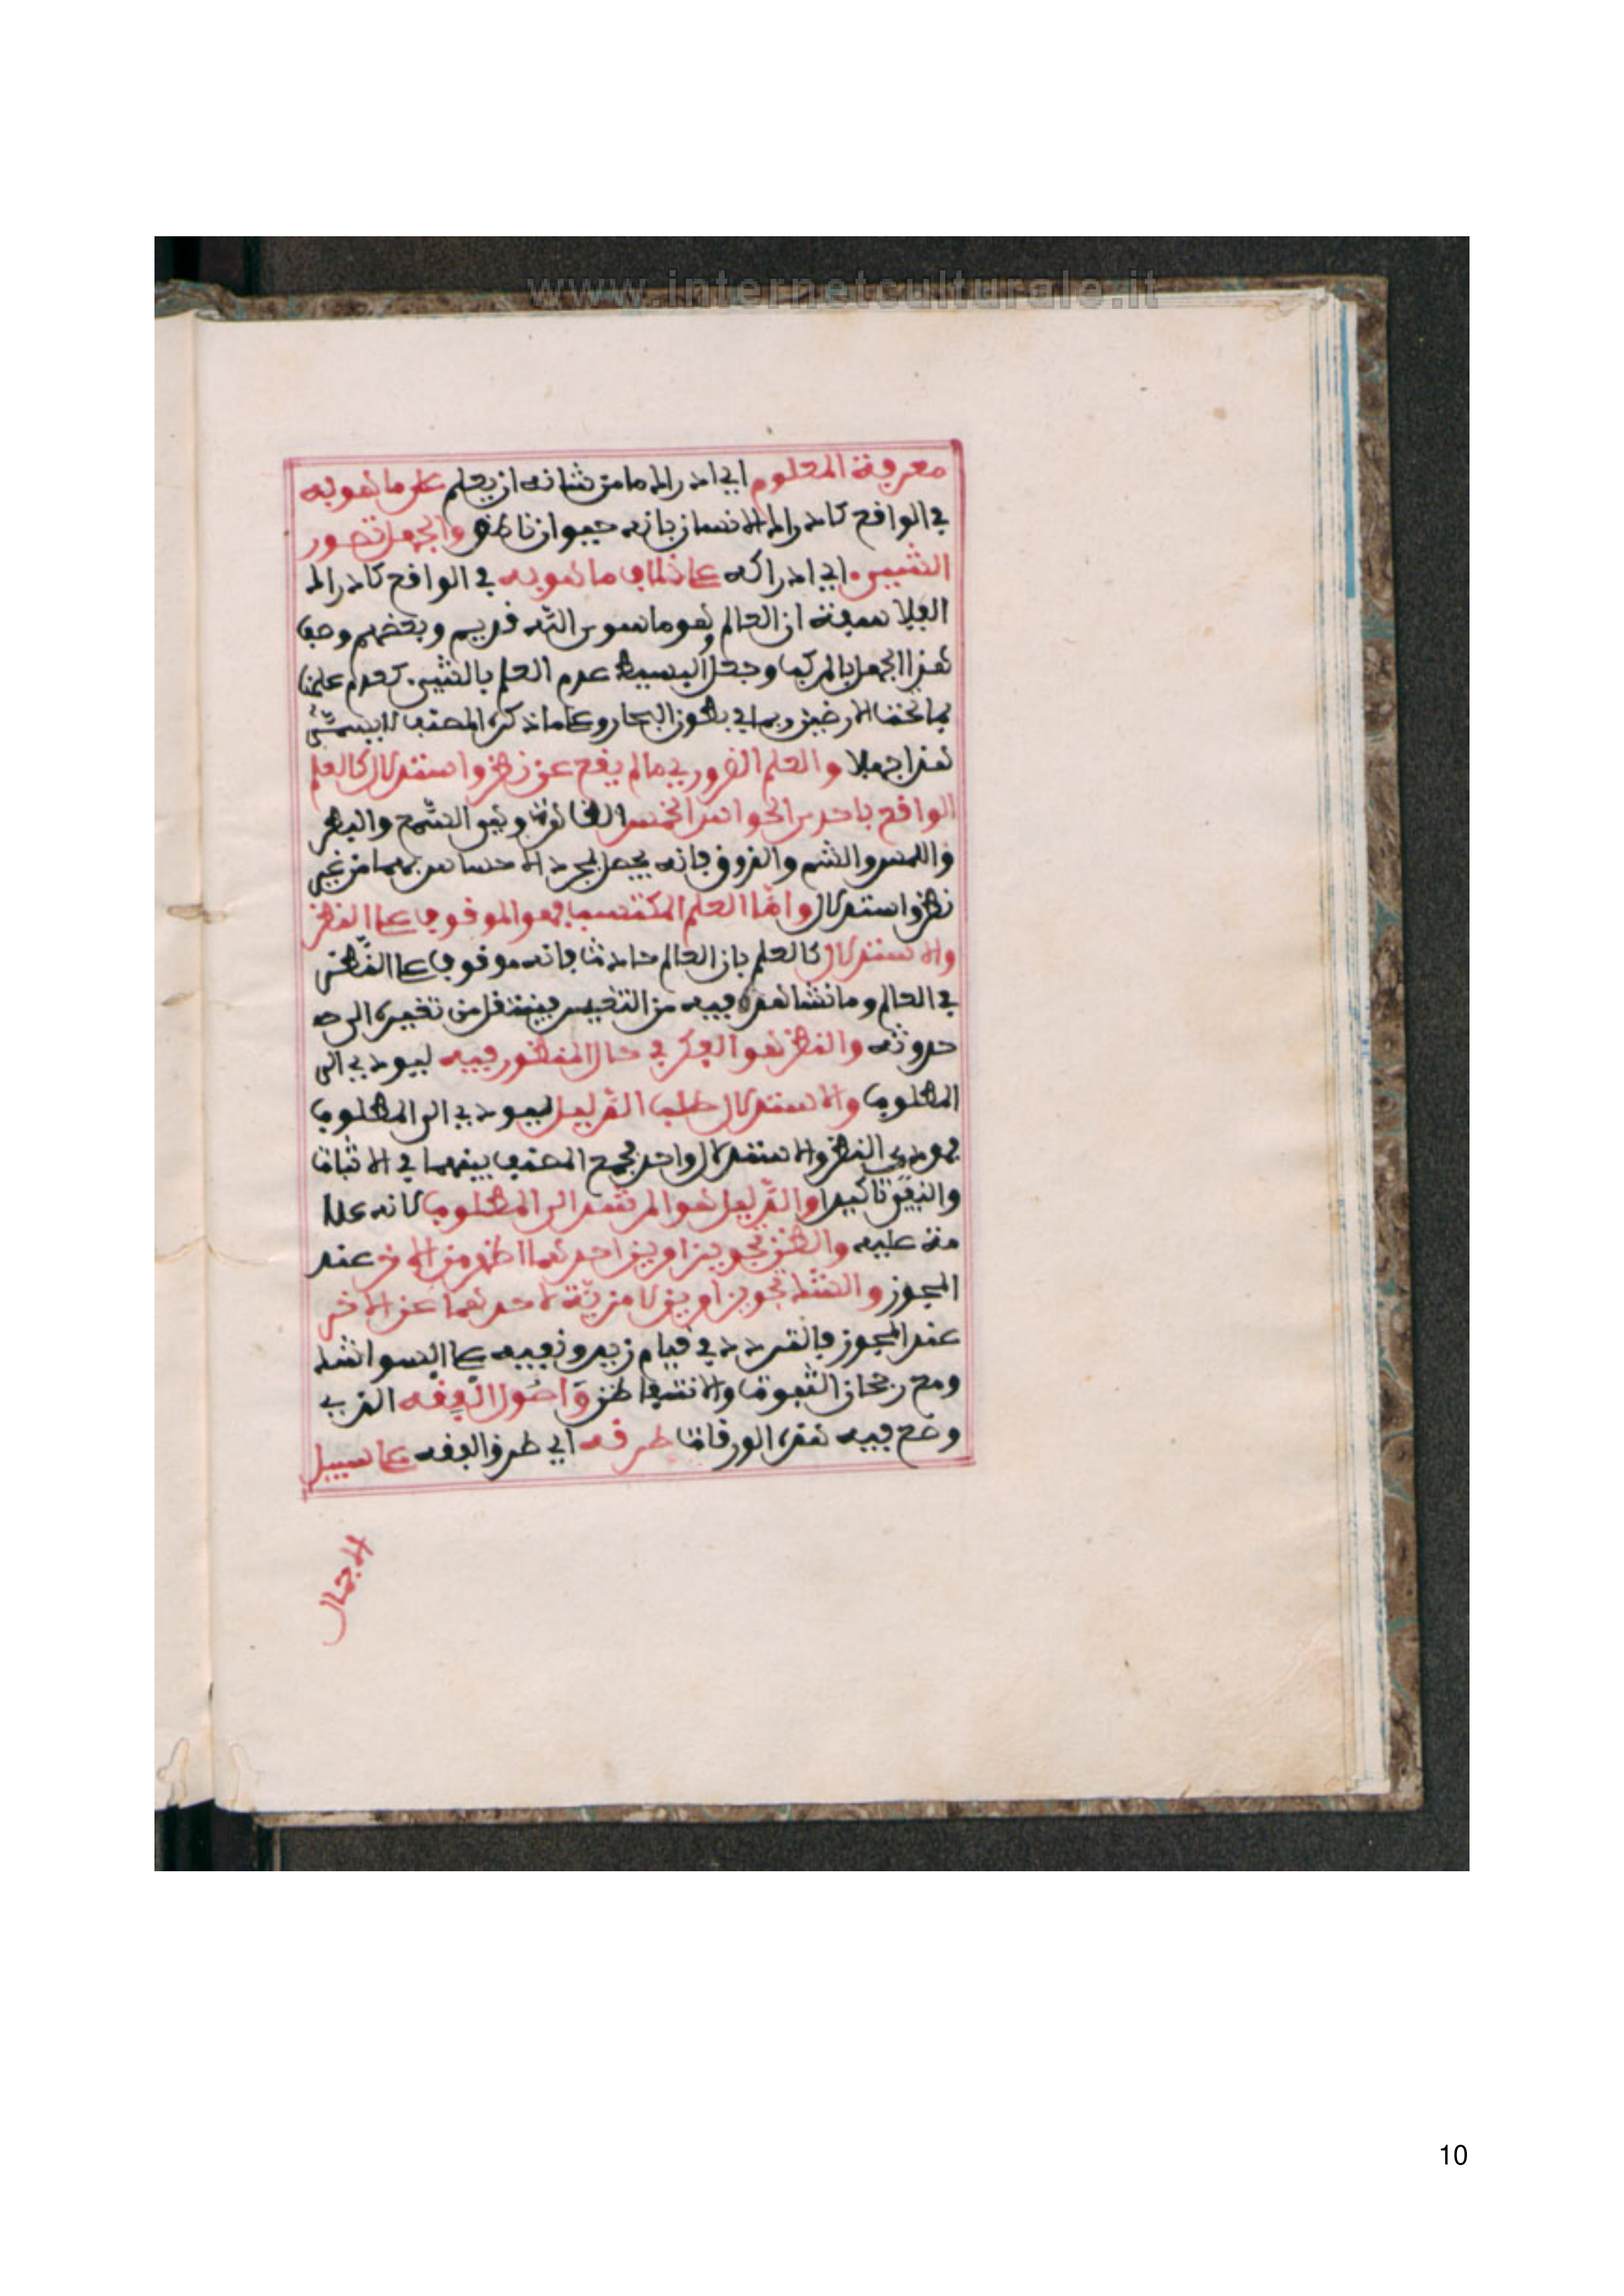 www.internetculturale.it
معرفة المعلوم اي ادراك ما من شانه ان يعلم على ما هو به
في الواقع كادراك الانسان بانه حيوان ناطق والجهل تصور
الشيء اي ادراكه على خلاف ما هو به في الواقع كادراك
الفلاسفة ان العالم وهو ما سوى الله قديم وبعضهم وصف
هذا الجهل بالمركب وجعل البسيط عدم العلم بالشيء كعدم علمنا
بما تحت الارضين وبما في بطون البحار وعلى ما ذكره المصنف لا يسمى
هذا جهلا والعلم الضروري ما لم يقع عن نظر واستدلال كالعلم
الواقع باحدى الحواس الخمس الظاهرة وهي السمع والبصر
واللمس والشم والذوق فانه يحصل بمجرد الاحساس بها من غير
نظر واستدلال واما العلم المكتسب فهو الموقوف على النظر
والاستدلال كالعلم بان العالم حادث فانه موقوف على النظر
في العالم وما نشاهده فيه من التغيير فينتقل من تغيره الى
حدوثه والنظر هو الفكر في حال المنظور فيه ليودي الى
المطلوب والاستدلال طلب الدليل ليودي الى المطلوب
فمودى النظر والاستدلال واحد فجمع المصنف بينهما في الاثبات
والنفي تاكيدا والدليل هو المرشد الى المطلوب لانه علا
مة عليه والظن تجويز امرين احدهما اظهر من الاخر عند
المجوز والشك تجويز امرين لا مزية لاحدهما عن الاخر
عند المجوز فالتردد في قيام زيد ونفيه على السوا شك
ومع رجحان الثبوت والانتفا ظن واصول الفقه الذي
وضع فيه هذه الورقات طرقه اي طرق الفقه على سبيل
الاجمال
10